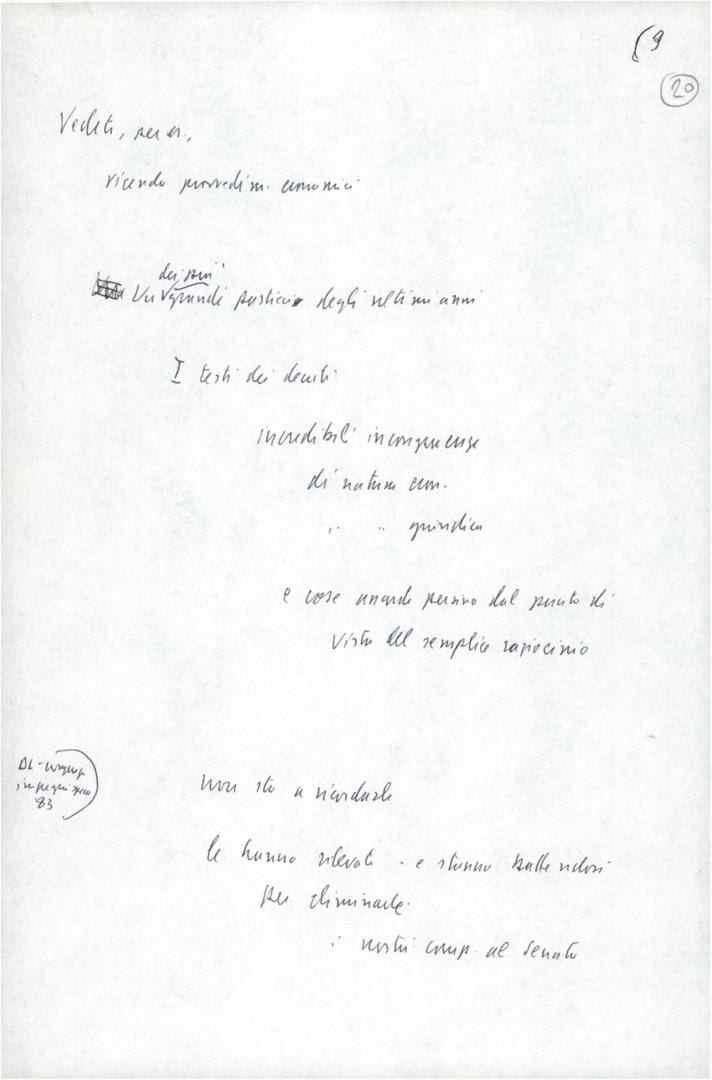 (9
20
Vedete, per es.,
vicenda provvedim. economici
dei più
Un grandi pasticci degli ultimi anni
I testi dei decreti
incredibili incongruenze
di natura econ.
" " giuridica
e cose assurde persino dal punto di
vista del semplice raziocinio
DL -
83
non sto a ricordarle
le hanno rilevati - e stanno battendosi
per eliminarle.
i nostri comp. al Senato